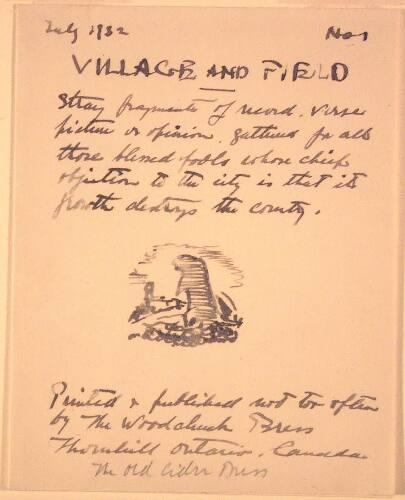 July 1932 No 1
VILLAGE AND FIELD
Stray fragments of record, verse
picture or opinion, gathered for all
those blessed fools whose chief
objection to the city is that its
growth destroys the country.
Printed & published not too often
by The Woodchuck Press
Thornhill Ontario. Canada
The old Cider Press